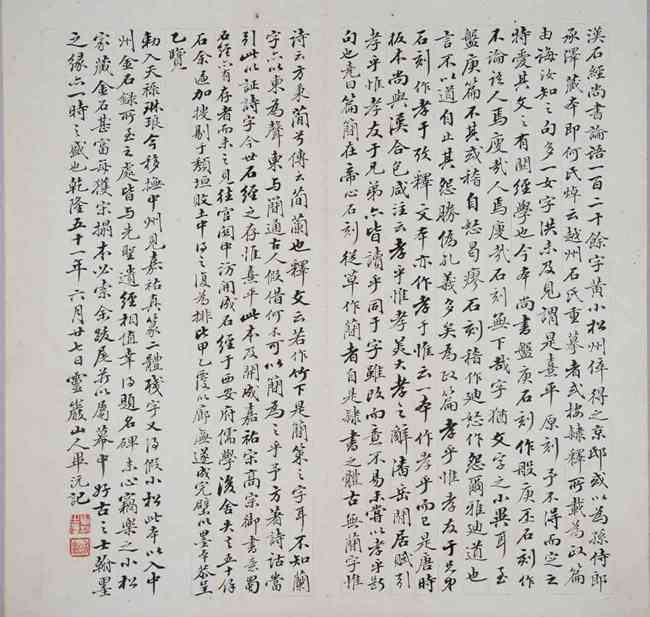 漢石經尚書論語一百二十餘字黃小松州倅得之京邸或以為孫侍郎
承澤藏本即何氏焯云越州石氏重摹者或據隸釋所載為政篇
由誨汝知之句多一女字洪未及見謂是熹平原刻予不得而定之
特愛其文之有關經學也今本尚書盤庚石刻作般庚丕石刻作
不論語人焉廋哉人焉廋哉石刻無下哉字猶文字之小異耳至
盤庚篇不其或稽自怒曷瘳石刻稽作迪怒作怨爾雅迪道也
言不以道自止其怨勝偽孔義多矣為政篇孝乎惟孝友于兄弟
石刻作孝于攷釋文本亦作孝于惟云一本作孝乎而已是唐時
板本尚與漢合包咸注云孝乎惟孝美大孝之辭潘岳閒居賦引
孝乎惟孝友于兄弟亦皆讀乎同于字雖改而意不易未嘗以孝乎斷
句也堯曰篇簡在帝心石刻從草作蕳者自是隸書之體古無蕳字惟
詩云方秉蕳兮傳云蕳蘭也釋文云若作竹下是簡策之字耳不知蘭
字亦以柬為聲柬與簡通古人假借何不可以簡為之乎予方著詩詁當
引此以証詩字今世石經之存淮熹平此本及開成嘉祐宋高宗御書意蜀
石經亦有存者而未之見往官關中訪開成石經于西安府儒學後舍失之五十餘
石余通加搜剔于頹垣敗土中得之復為排比甲乙覆以廊廡遂成完壁以墨本恭呈
乙覽
勅入天祿琳琅今移撫中州見嘉祐真篆二體殘字又得假小松此本以入中
州金石錄所至之處皆与先聖遺經相值幸得題名碑末心竊樂之小松
家藏金石甚富每獲宋搨本必索余跋尾并以屬幕中好古之士翰墨
之緣亦一時之盛也乾隆五十一年六月廿七日靈巖山人畢沅記